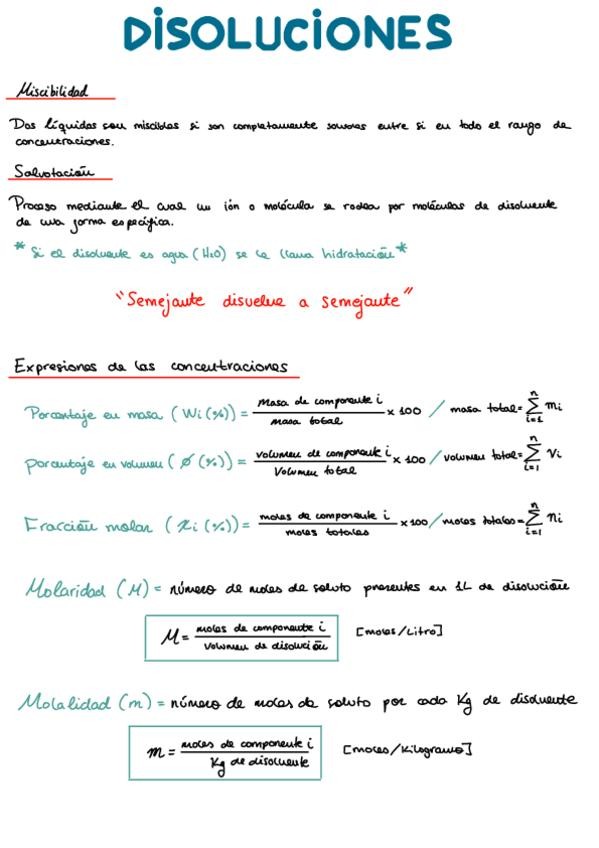 DISOLUCIONES
Miscibilidad
Dos líquidos son miscibles si son completamente solubles entre si en todo el rango de
concentraciones.
Salvotación
Proceso mediante el cual un ión o molécula se rodea por moléculas de disolvente
de una forma específica.
* Si el disolvente es agua (H2O) se le llama hidratación *
"Semejante disuelve a semejante"
Expresiones de las concentraciones
Porcentaje en masa (Wi(%)) = masa de componente i / masa total × 100 / masa total = n Σ i=1 mi
porcentaje en volumen (ϕ(%)) = volumen de componente i / Volumen total × 100 / volumen total = n Σ i=1 Vi
Fracción molar (χi(%)) = moles de componente i / moles totales × 100 / moles totales = n Σ i=1 ni
Molaridad (M) = número de moles de soluto presentes en 1L de disolución
M = moles de componente i / volumen de disolución [moles/Litro]
Molalidad (m) = número de moles de soluto por cada Kg de disolvente
m = moles de componente i / Kg de disolvente [moles/Kilogramo]